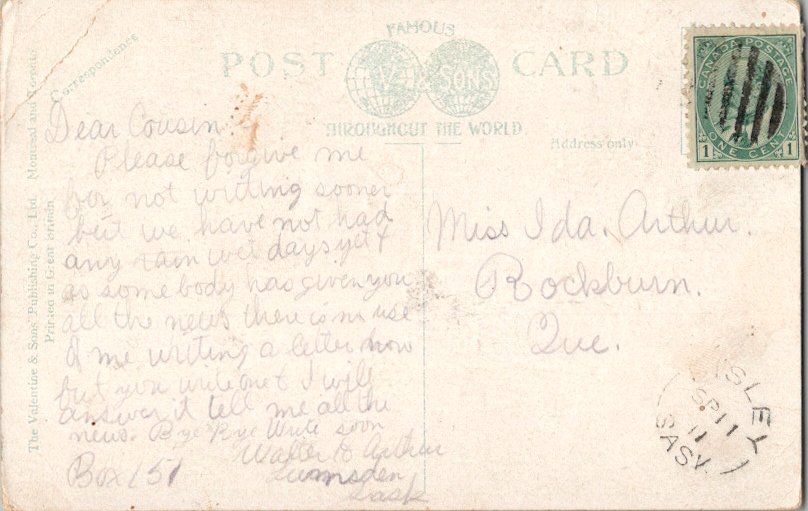 FAMOUS
POST CARD
V & SONS
THROUGHOUT THE WORLD
Correspondence
Address only
The Valentine & Sons' Publishing Co., Ltd. Montreal and Toronto.
Printed in Great Britain.
CANADA POSTAGE
1 ONE CENT 1
Dear Cousin. -
Please forgive me
for not writing sooner
but we have not had
any rain wet days yet &
as somebody has given you
all the news there is no use
of me writing a letter now
but you write one & I will
answer it tell me all the
news. Bye Bye Write soon
Walter D Arthur
Box 151 Lumsden
Sask
Miss Ida. Arthur.
Rockburn.
Que.
SLEY
SP 11
11
SASK.